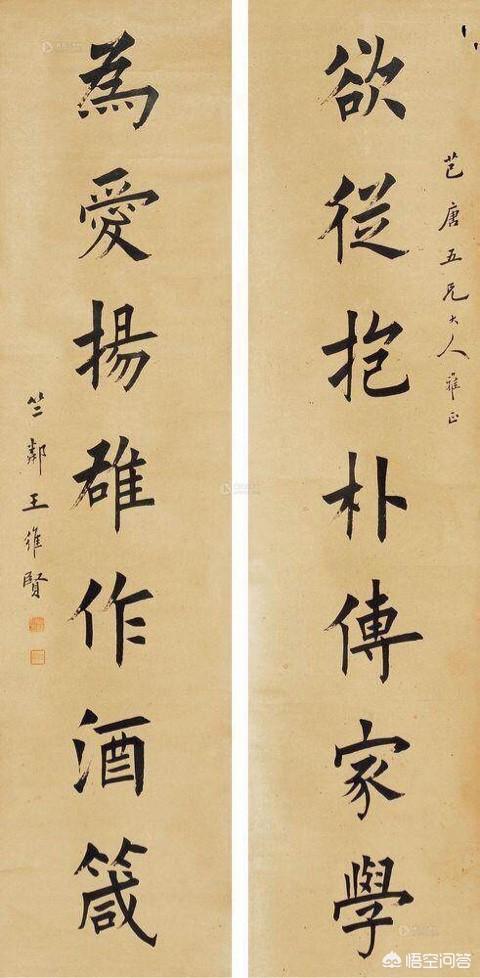 芑唐五兄大人雅正
欲從抱朴傳家學
為愛揚雄作酒箴
竺鄰王維賢
悟空问答